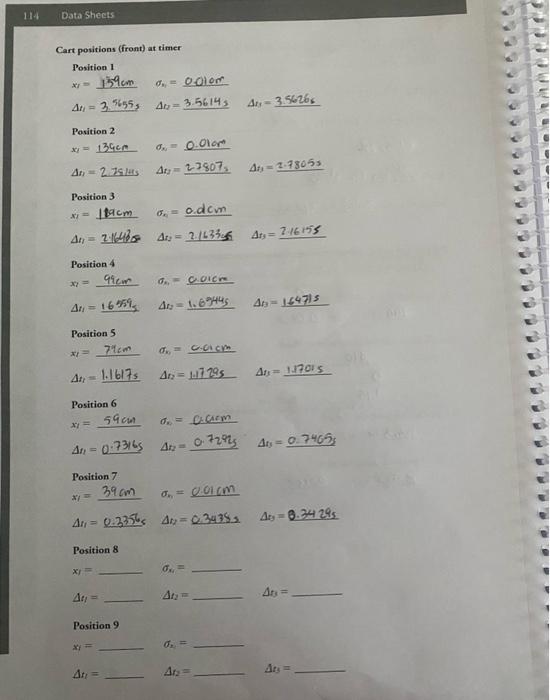 114 Data Sheets
Cart positions (front) at timer
Position 1
x₁ = 159cm σₓ₁ = 0.01cm
Δt₁ = 3.5655s Δt₂ = 3.5614s Δt₃ = 3.5626s
Position 2
x₁ = 139cm σₓ₁ = 0.01cm
Δt₁ = Δt₂ = 2.7807s Δt₃ = 2.7805s
Position 3
x₁ = 119cm σₓ₁ = 0.01cm
Δt₁ = Δt₂ = Δt₃ = 2.1615s
Position 4
x₁ = 99cm σₓ₁ = 0.01cm
Δt₁ = Δt₂ = Δt₃ = 1.6471s
Position 5
x₁ = 79cm σₓ₁ = 0.01cm
Δt₁ = 1.1617s Δt₂ = 1.1728s Δt₃ = 1.1701s
Position 6
x₁ = 59cm σₓ₁ = 0.01cm
Δt₁ = 0.7316s Δt₂ = 0.7292s Δt₃ = 0.7405s
Position 7
x₁ = 39cm σₓ₁ = 0.01cm
Δt₁ = 0.3356s Δt₂ = 0.3438s Δt₃ = 0.3429s
Position 8
x₁ = σₓ₁ =
Δt₁ = Δt₂ = Δt₃ =
Position 9
x₁ = σₓ₁ =
Δt₁ = Δt₂ = Δt₃ =